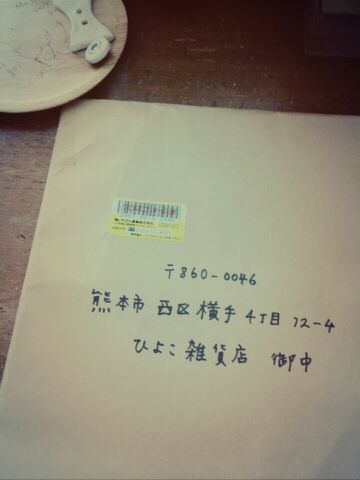 〒860-0046
熊本市 西区 横手 4丁目 12-4
ひよこ 雑貨店 御中